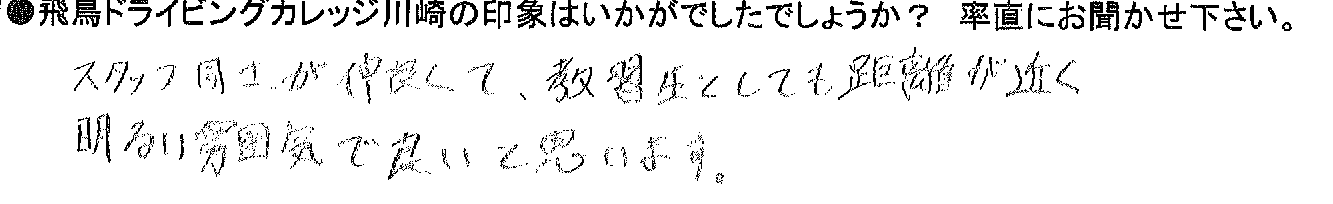 ●飛鳥ドライビングカレッジ川崎の印象はいかがでしたでしょうか？ 率直にお聞かせ下さい。
スタッフ同士が仲良くて、教習生としても距離が近く
明るい雰囲気で良いと思います。